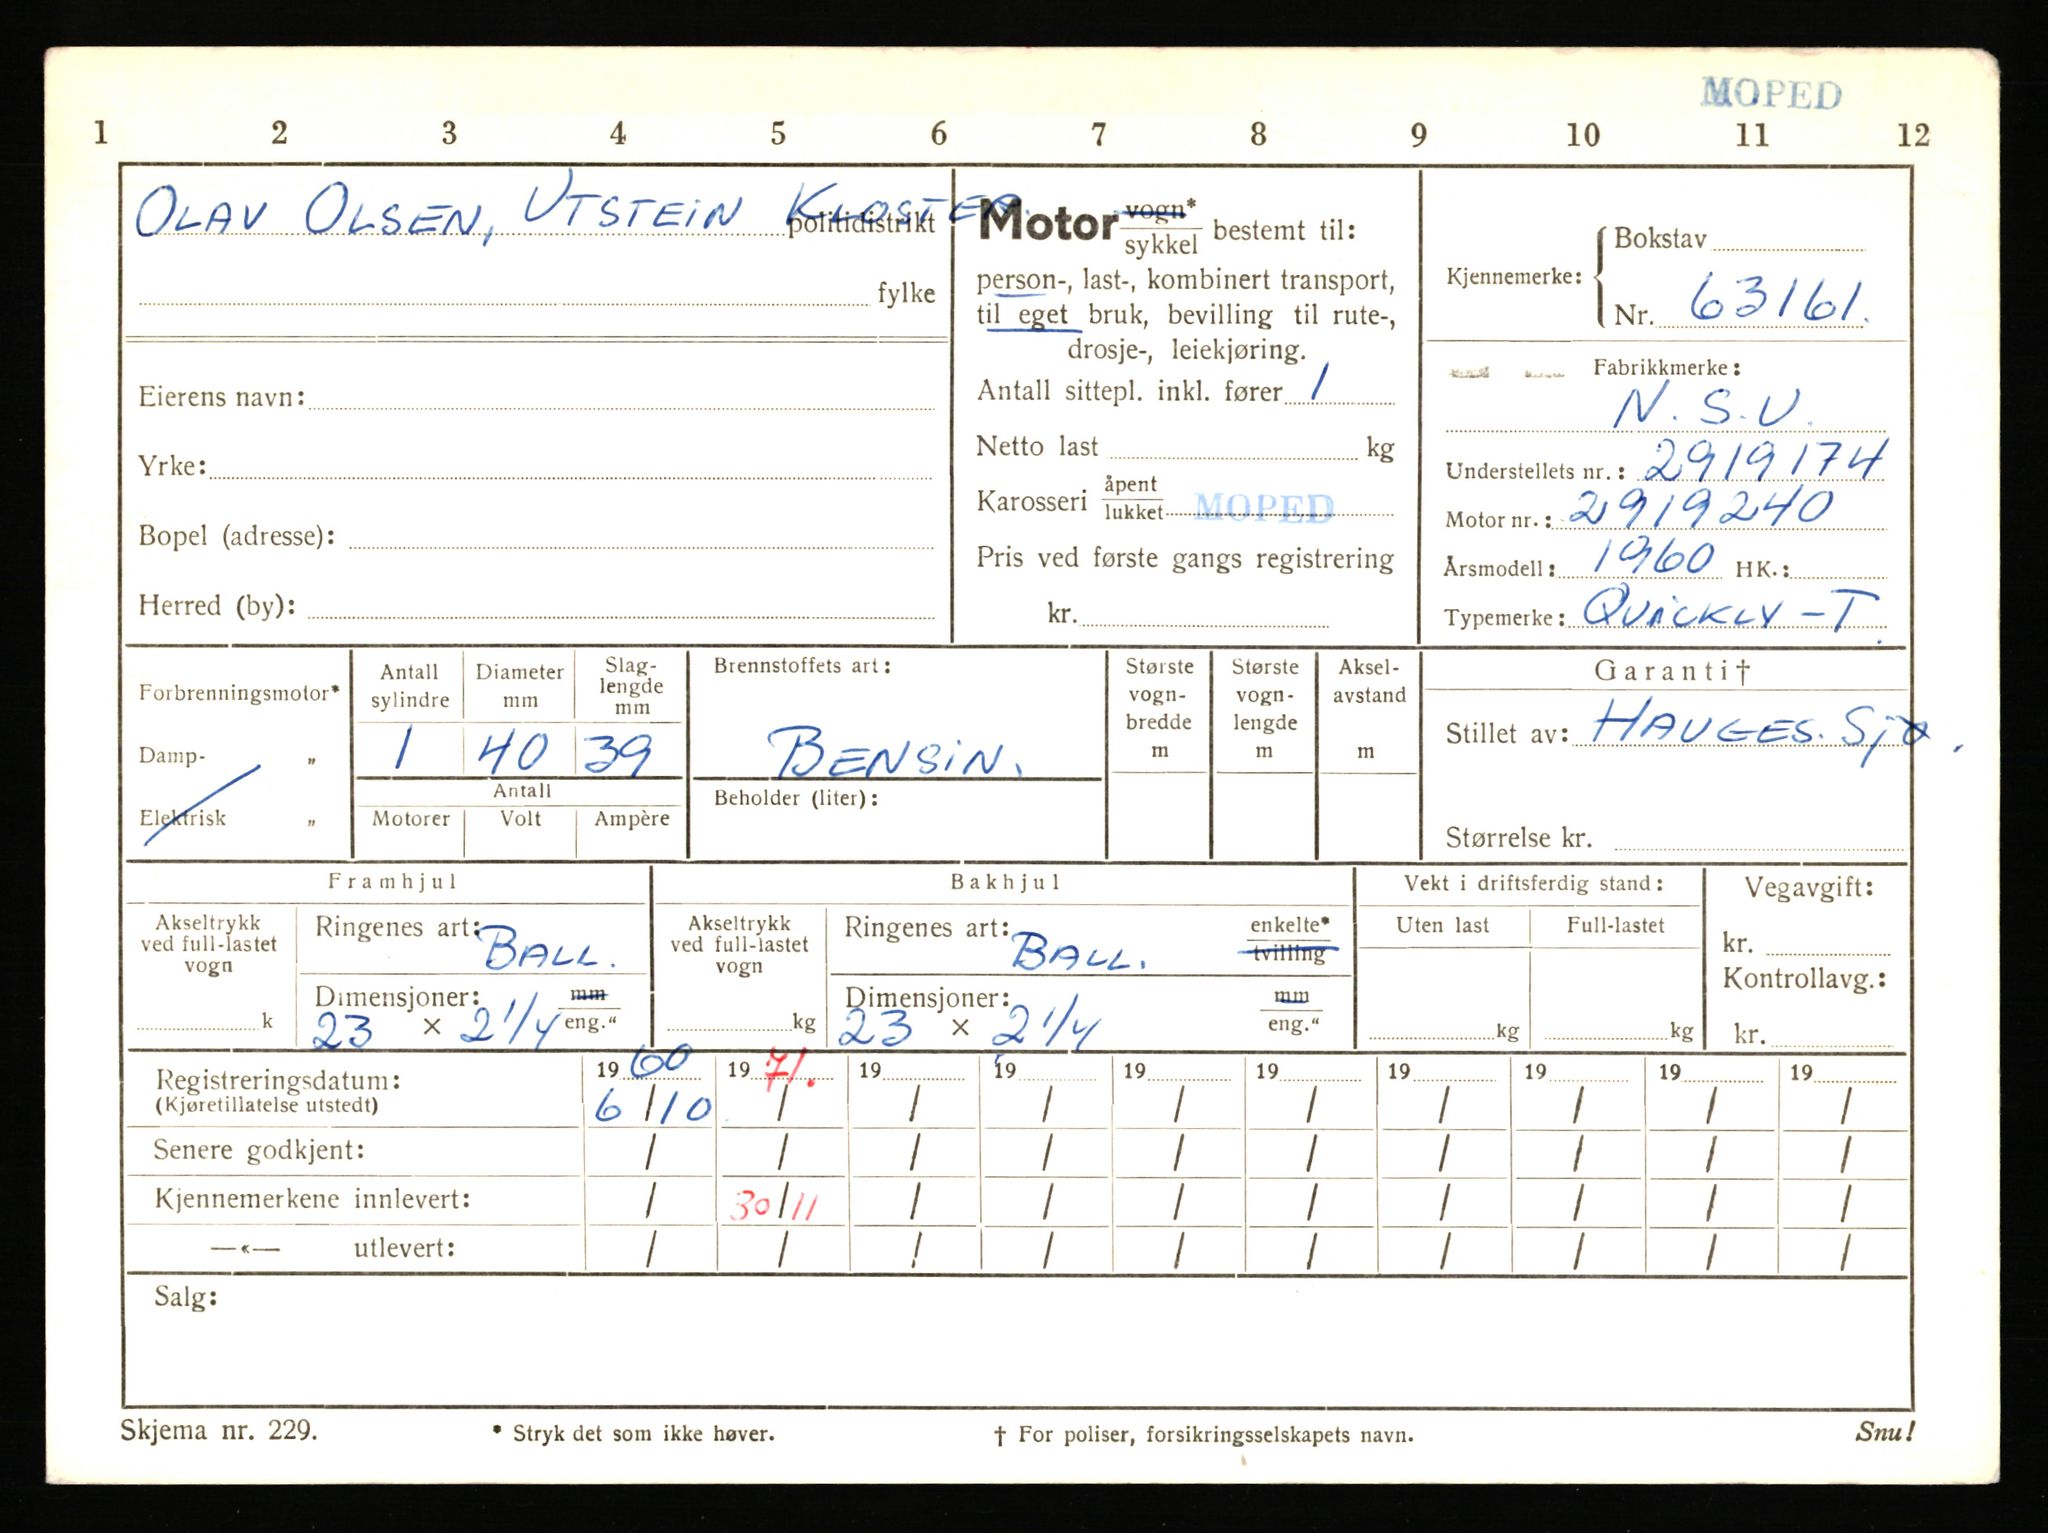 MOPED
1 2 3 4 5 6 7 8 9 10 11 12
OLAV OLSEN, UTSTEIN KLOSTER. politidistrikt
fylke
Eierens navn:
Yrke:
Bopel (adresse):
Herred (by):
Motor vogn* sykkel bestemt til:
person-, last-, kombinert transport,
til eget bruk, bevilling til rute-,
drosje-, leiekjøring.
Antall sittepl. inkl. fører 1
Netto last kg
Karosseri åpent lukket MOPED
Pris ved første gangs registrering
kr.
Kjennemerke: Bokstav
Nr. 63161.
Fabrikkmerke:
N.S.U.
Understellets nr.: 2919174
Motor nr.: 2919240
Årsmodell: 1960 HK.:
Typemerke: QUICKLY-T.
Forbrenningsmotor*
Damp- „
Elektrisk „
Antall sylindre Diameter mm Slag-lengde mm
1 40 39
Antall
Motorer Volt Ampère
Brennstoffets art:
BENSIN.
Beholder (liter):
Største vogn-bredde m
Største vogn-lengde m
Aksel-avstand m
Garanti†
Stillet av: HAUGES. Sjø.
Størrelse kr.
Framhjul
Akseltrykk ved full-lastet vogn
k
Ringenes art: BALL.
Dimensjoner: mm
23 × 2 1/4 eng.“
Bakhjul
Akseltrykk ved full-lastet vogn
kg
Ringenes art: BALL. enkelte* tvilling
Dimensjoner: mm
23 × 2 1/4 eng.“
Vekt i driftsferdig stand:
Uten last Full-lastet
kg kg
Vegavgift:
kr.
Kontrollavg.:
kr.
Registreringsdatum: 19 60 19 71. 19 19 19 19 19 19 19 19
(Kjøretillatelse utstedt) 6/10 / / / / / / / / /
Senere godkjent: / / / / / / / / / /
Kjennemerkene innlevert: / 30/11 / / / / / / / /
—«— utlevert: / / / / / / / / / /
Salg:
Skjema nr. 229. * Stryk det som ikke høver. † For poliser, forsikringsselskapets navn. Snu!